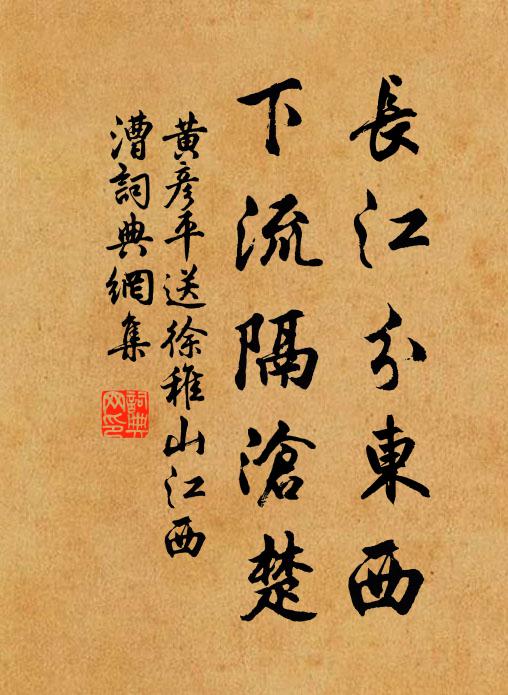 長江分東西
下流隔滄楚
黃彥平送徐稚山江西
漕詞典網集
詞典
网印